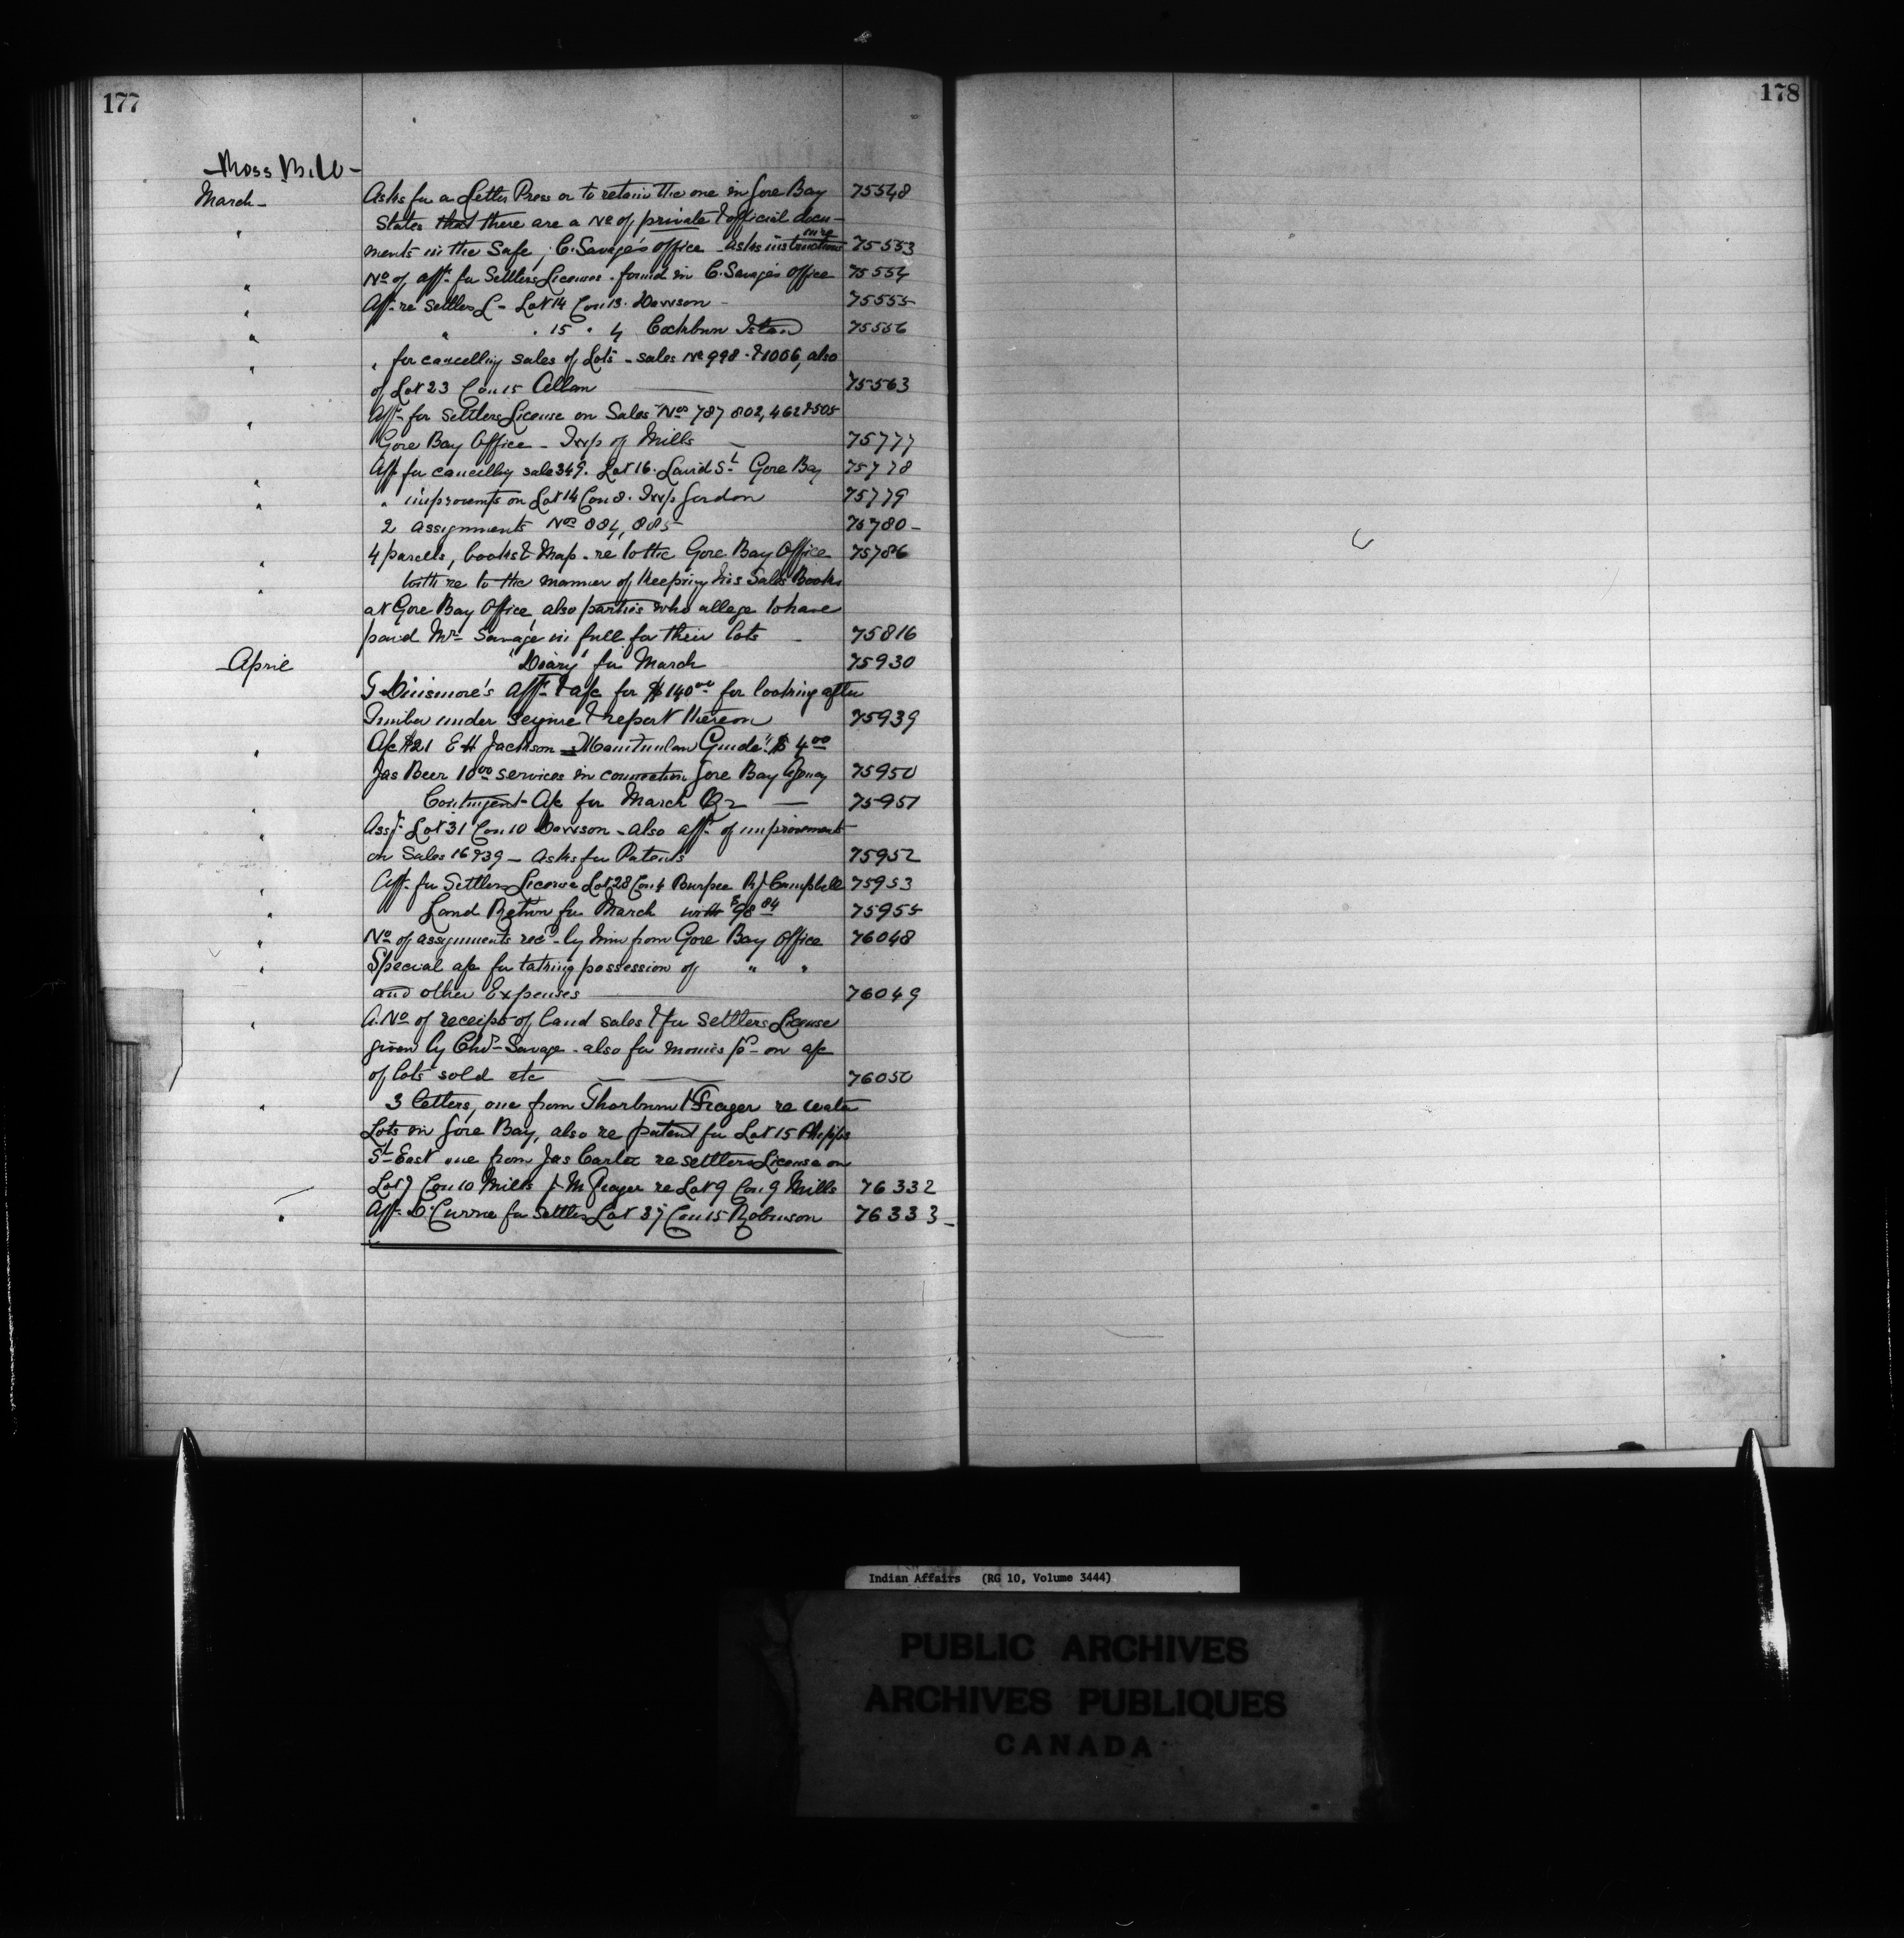 177
178
Ross B. W -
March -
Asks for a Letter Press or to retain the one in Gore Bay 75548
" States that there are a No of private & official docu-
ments in the Safe, C. Savage's office - asks instructions 75553
" No of affts for Settlers Licenses - found in C. Savage's office 75554
" Afft re Settlers L - Lot 14 Con 13 - Dawson - 75555
" " " 15 " 4 Cockburn Island 75556
" " for cancelling sales of Lots - sales No 998 - & 1006, also
of Lot 23 Con 15 Allan 75563
" Affts for Settlers License on Sales Nos 787 802, 462 & 505
Gore Bay Office - Twp of Mills - 75777
" Aff for cancelling sale 349. Lot 16. David St Gore Bay 75778
" " improvemts on Lot 14 Con 8. Twp Gordon 75779
2 assignments Nos 884, 885 75780 -
" 4 parcels, books & Map - re to the Gore Bay Office 75786
" With re to the manner of Keeping his Sales Books
at Gore Bay Office, also parties who allege to have
paid Mr Savage in full for their lots - 75816
April "Diary" for March 75930
G Dinsmore's Afft & a/c for $140 00 for looking after
Timber under seizure & report thereon 75939
" A/c #21 E H Jackson = "Manitoulin Guide" $4 00
Jas Beer 10 00 services in connection Gore Bay Agency 75950
" Contingent A/c for March Qr 75951
" Assgt Lot 31 Con 10 Dawson - also affts of improvements
on Sales 16 & 39 - asks for Patents 75952
" Afft for Settlers License Lot 28 Con 4 Burpee R J Campbell 75953
" Land Return for March with $98 84 75955
" No of assignments recd by him from Gore Bay Office 76048
" Special a/c for taking possession of " "
and other Expenses 76049
" A. No of receipts of land sales & for Settlers License
given by Chas Savage - also for monies pd on a/c
of lots sold etc 76050
" 3 letters, one from Thorburn & Frazer re water
Lots in Gore Bay, also re patent for Lot 15 Phipps
St East one from Jas Carter re settlers License on
Lot 7 Con 10 Mills J. M Frazer re Lot 9 Con 9 Mills 76332
" Afft D. Currie for Settlers Lot 37 Con 15 Robinson 76333 -
Indian Affairs (RG 10, Volume 3444)
PUBLIC ARCHIVES
ARCHIVES PUBLIQUES
CANADA